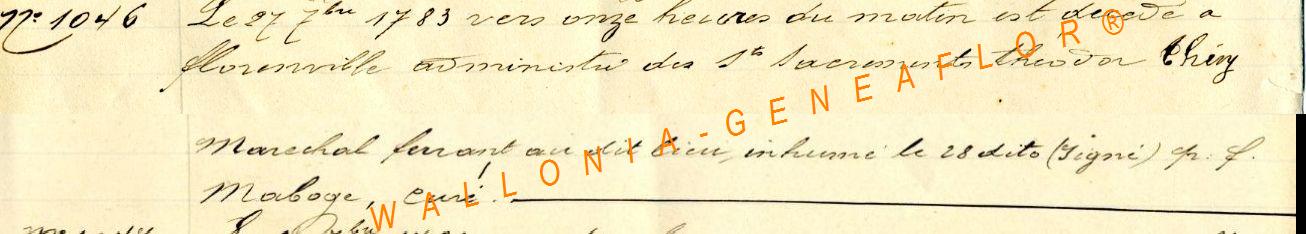 N° 1046 Le 27 7bre 1783 vers onze heures du matin est décédé a
florenville administré des Sts Sacrements théodor Thiry
Marechal ferrant au dit lieu, inhumé le 28 dito (Signé) p. f.
Maboge, curé.
WALLONIA-GENEAFLOR®